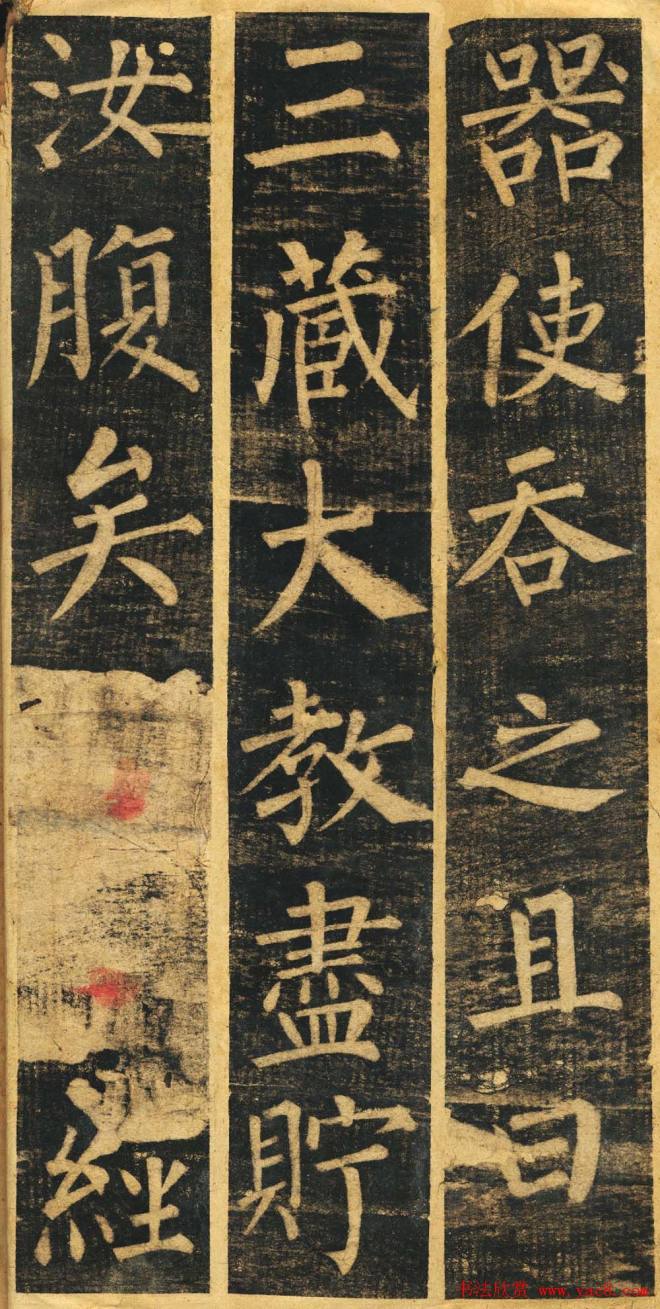 器使吞之且曰
三藏大教盡貯
汝腹矣經
书法欣赏 www.yac8.com